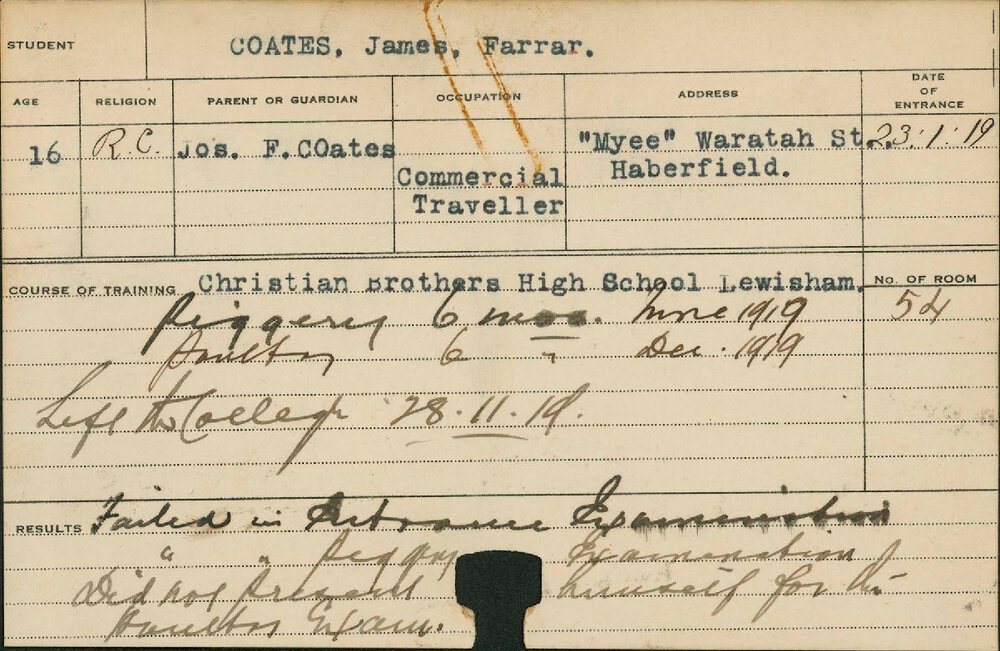 STUDENT COATES, James, Farrar.
AGE RELIGION PARENT OR GUARDIAN OCCUPATION ADDRESS DATE OF ENTRANCE
16 R.C. Jos. F.COates Commercial Traveller "Myee" Waratah St., Haberfield. 23.1.19
COURSE OF TRAINING Christian Brothers High School Lewisham. No. OF ROOM
Piggery 6 mos. June 1919 54
Poultry 6 " Dec. 1919
Left the College 28.11.19.
RESULTS Failed in Entrance Examination
" " Piggery Examination
Did not present himself for the
Poultry Exam.